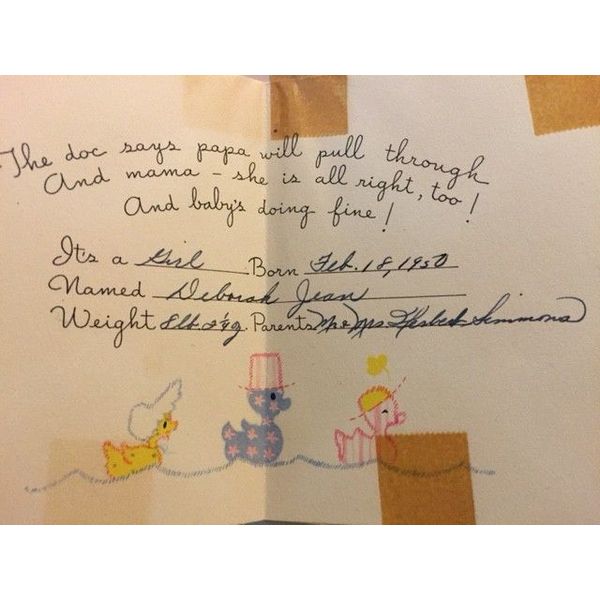 The doc says papa will pull through
And mama - she is all right, too!
And baby's doing fine!
It's a Girl Born Feb. 18, 1950
Named Deborah Jean
Weight 8 lb. Parents Mr & Mrs Herbert Simmons